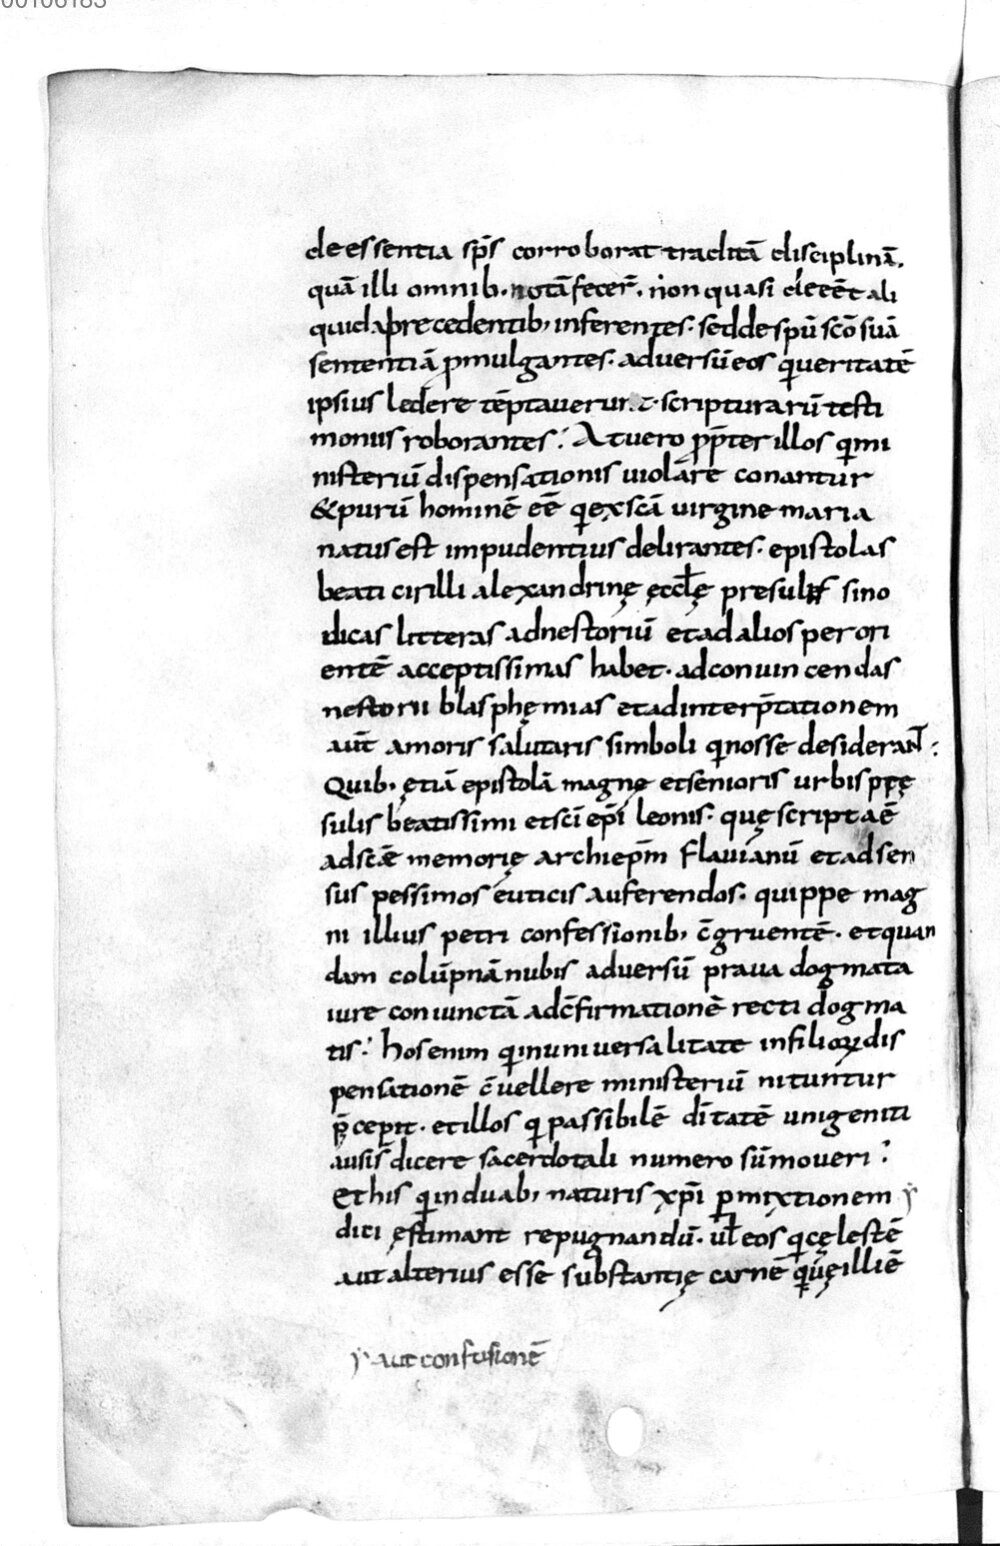 00106183
de essentia sp̄s corroborat traditā disciplinā.
quā illi omnib. notā fecer̄. non quasi deeēt ali
quid a precedentib; inferentes. sed de spū scō suā
sententiā promulgantes. adversū eos qui veritatē
ipsius ledere tēptaverunt. scripturarū testi
moniis roborantes. At vero ꝓpter illos qui mi
nisteriū dispensationis violare conantur
& purū hominē eē qui ex scā virgine maria
natus est impudentius delirantes. epistolas
beati cirilli alexandrinę ęccłę presulis sino
dicas litteras ad nestoriū et ad alios per ori
entē acceptissimas habet. ad convincendas
nestorii blasphęmias et ad interp̄tationem
aūt amoris salutaris simboli qui nosse desiderant:
Quib; ętiā epistolā magnę et senioris urbis pręę
sulis beatissimi et scī ep̄i leonis. quę scripta ē
ad scæ memorię archiep̄m flavianū et ad sen
sus pessimos euticis auferendos. quippe mag
ni illius petri confessionib; c̄gruentē. et quan
dam colūpnā nubis adversū prava dogmata
iure coniunctā ad c̄firmationē recti dogma
tis. hos enim qui in universalitate in filioꝝ dis
pensationē c̄vellere ministeriū nituntur
p̄cepit. et illos qui passibilē dītatē unigeniti
ausis dicere sacerdotali numero sūmoveri:
Et his qui in duab; naturis xp̄i ꝑmixtionem
dici ęstimant repugnandū. uł eos qui cęlestē
aut alterius esse substantię carnē quę illi ē
aut confusionē